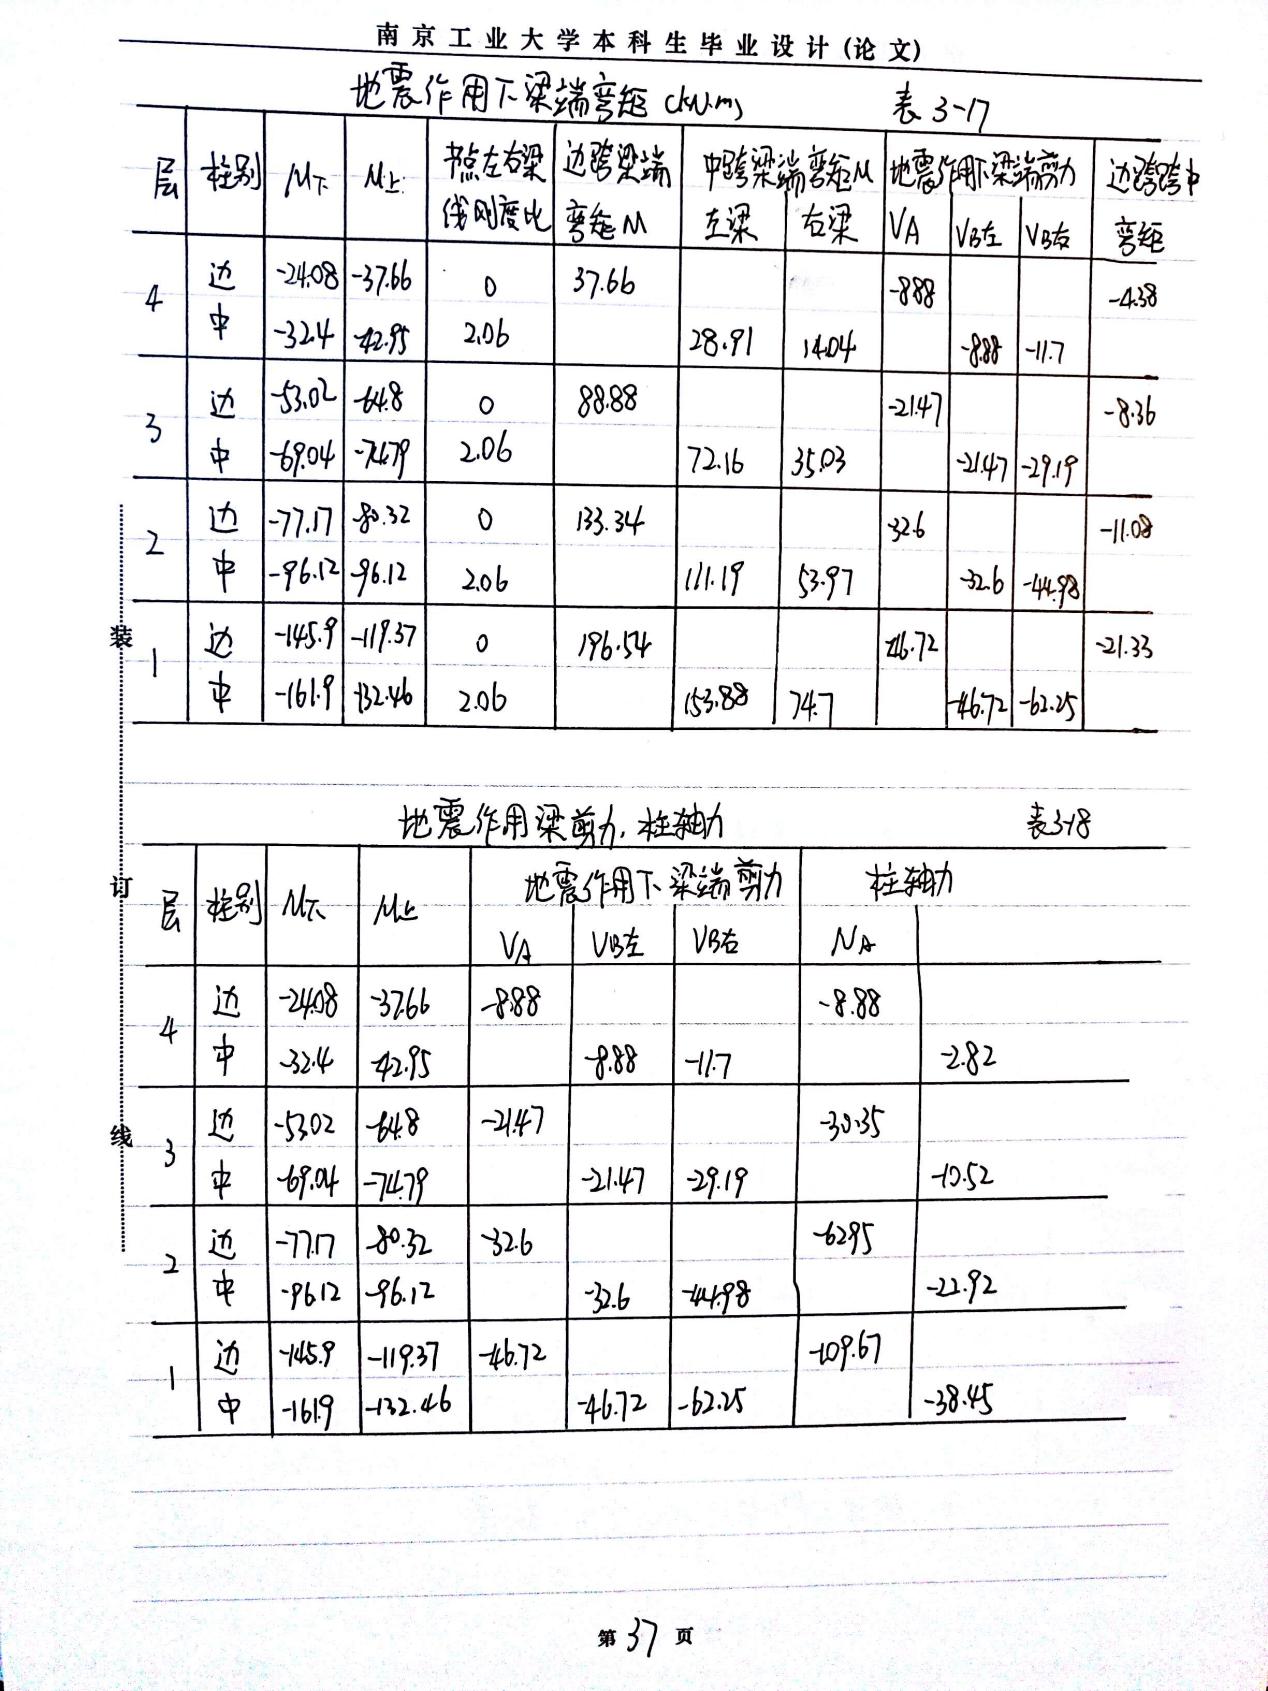 南京工业大学本科生毕业设计(论文)
地震作用下梁端弯矩 (kN.m) 表3-17
层 柱别 M下 M上 节点左右梁线刚度比 边跨梁端弯矩M 中跨梁端弯矩M 地震作用下梁端剪力 边跨跨中弯矩
左梁 右梁 VA VB左 VB右
4 边 -24.08 -37.66 0 37.66 -8.88 -4.38
中 -32.4 -42.95 2.06 28.91 14.04 -8.88 -11.7
3 边 -53.02 -64.8 0 88.88 -21.47 -8.36
中 -69.04 -74.79 2.06 72.16 35.03 -21.47 -29.19
2 边 -77.17 -80.32 0 133.34 -32.6 -11.08
中 -96.12 -96.12 2.06 111.19 53.97 -32.6 -44.98
1 边 -145.9 -119.37 0 196.54 -46.72 -21.33
中 -161.9 -132.46 2.06 153.88 74.7 -46.72 -62.25
地震作用梁剪力,柱轴力 表3-18
层 柱别 M下 M上 地震作用下梁端剪力 柱轴力
VA VB左 VB右 NA
4 边 -24.08 -37.66 -8.88 -8.88
中 -32.4 -42.95 -8.88 -11.7 -2.82
3 边 -53.02 -64.8 -21.47 -30.35
中 -69.04 -74.79 -21.47 -29.19 -10.52
2 边 -77.17 -80.32 -32.6 -62.95
中 -96.12 -96.12 -32.6 -44.98 -22.92
1 边 -145.9 -119.37 -46.72 -109.67
中 -161.9 -132.46 -46.72 -62.25 -38.45
装
订
线
第37页